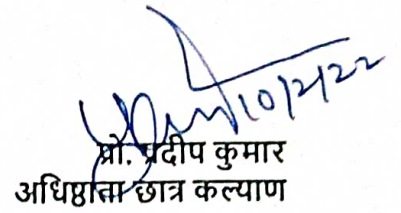 10/2/22
प्रो. प्रदीप कुमार
अधिष्ठाता छात्र कल्याण